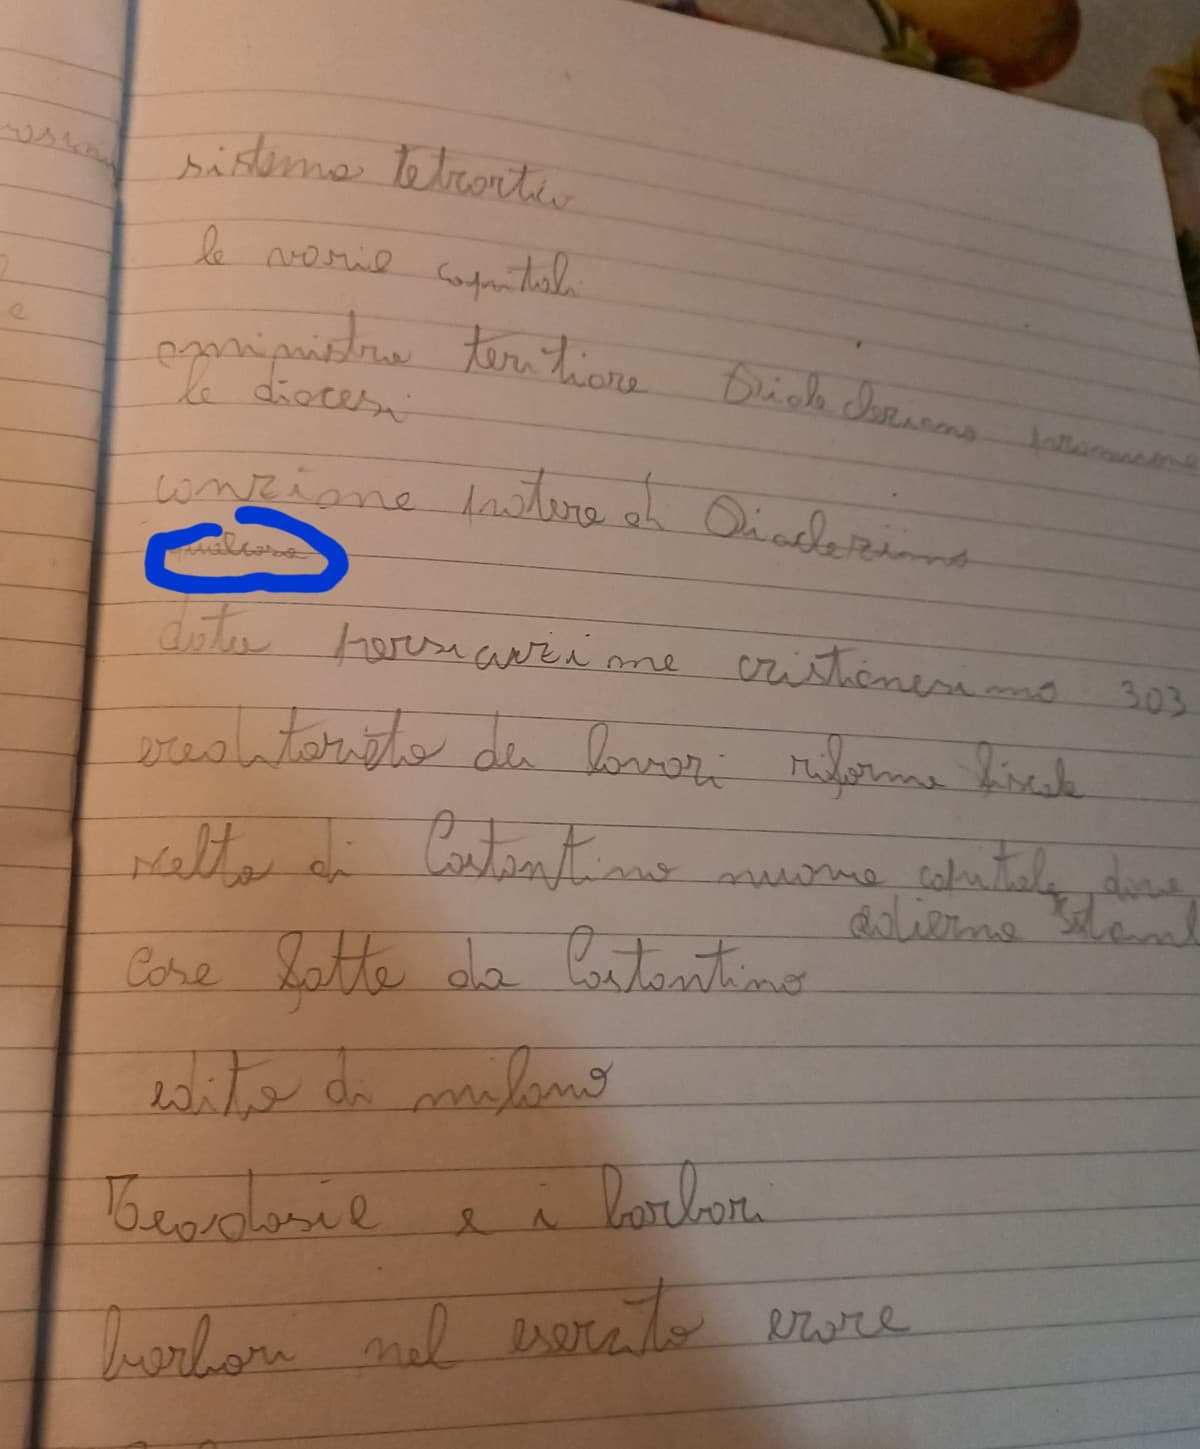 sistema tetrartiv
le varie capitali
amministra territiore
le diocesi
conzione potere di Diaclezziano
date persiauzione cristianesimo 303
ereditarietà dei lavori riforma fiscale
scelta di Costantino nuova capitale, dove
odierna Istanb
Cose fatte da Costantino
edito di milano
Teodosie e i barbari
barbari nel esercito erore